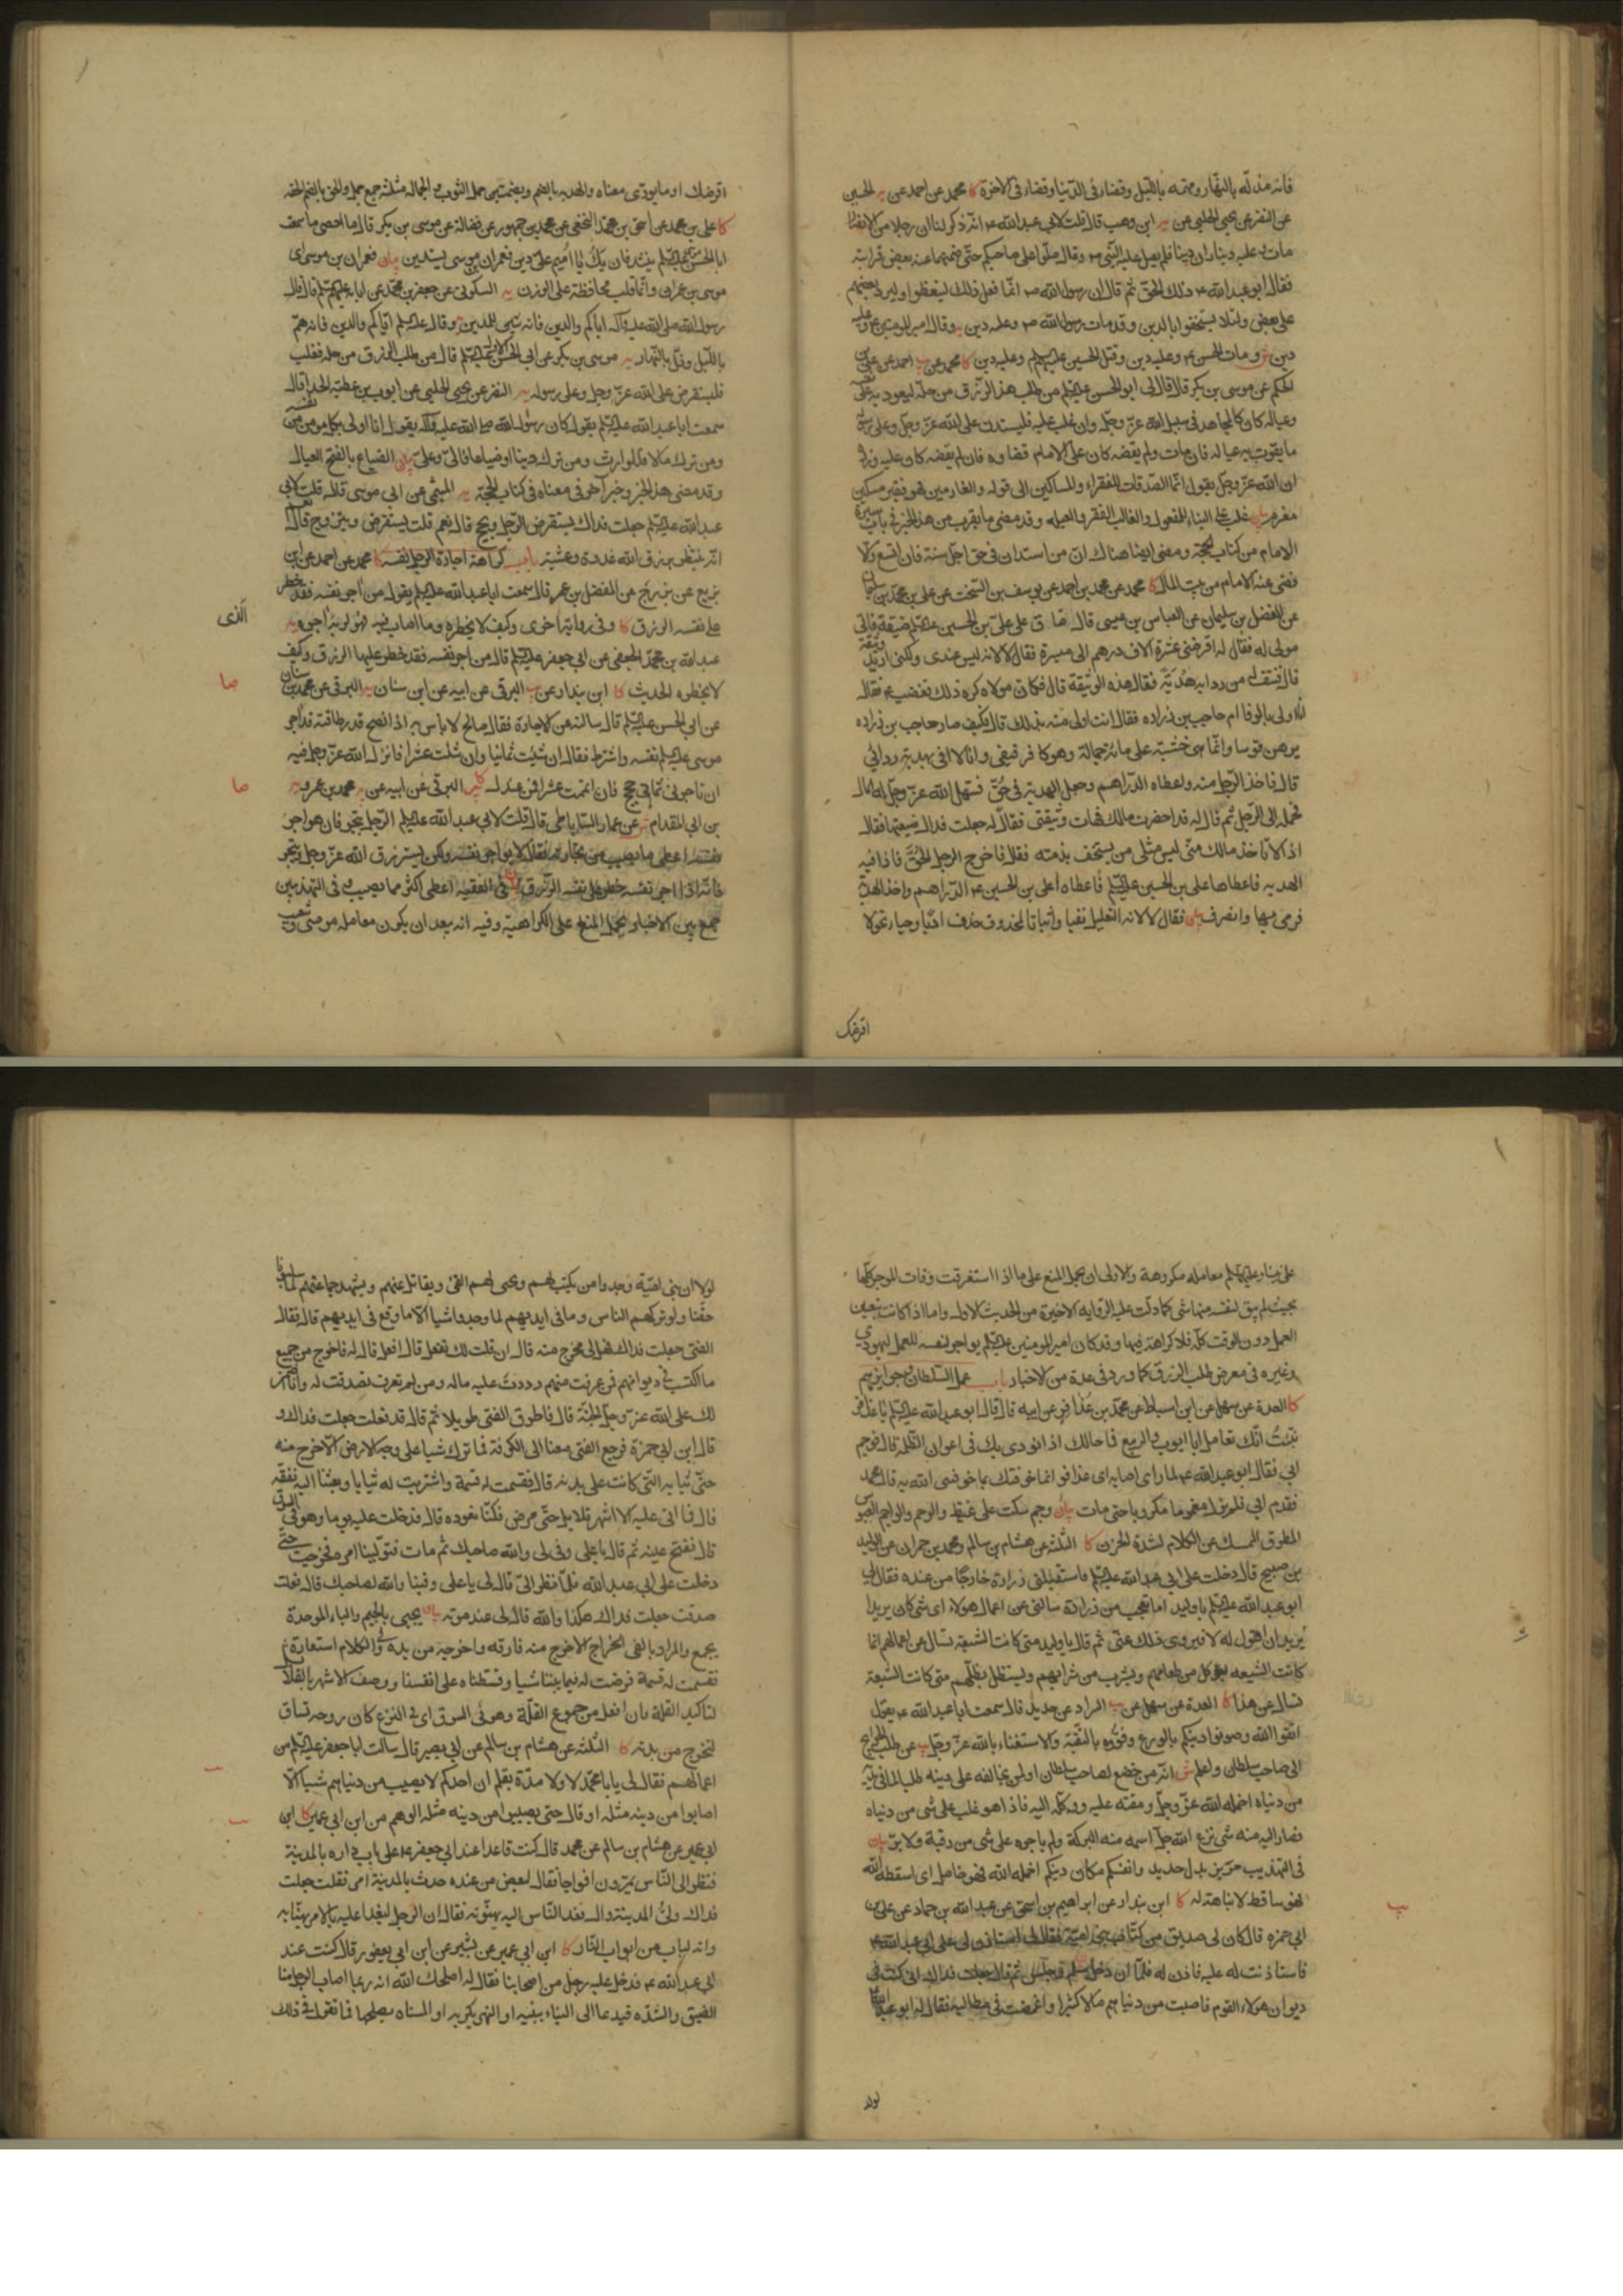 فانه مذلّه بالنهار ومهمه بالليل وقضاء فى الدنيا وقضاء فى الآخرة كا محمد عن احمد عن يه الحسين
عن النضر عن يحيى الحلبى عن يه ابن وهب قال قلت لابى عبد الله ع انه ذكر لنا ان رجلا من الانصار
مات وعليه ديناران دينا فلم يصل عليه النبى ص وقال صلوا على صاحبكم حتى ضمنهما عنه بعض قرابته
فقال ابو عبد الله ع ذلك الحق ثم قال ان رسول الله ص انما فعل ذلك ليتعظوا وليرد بعضهم
على بعض ولئلا يستخفوا بالدين وقد مات رسول الله ص وعليه دين يه وقال امير المومنين ع وعليه
دين ش ومات الحسن ع وعليه دين وقتل الحسين عليه السلم وعليه دين كا محمد عن يب احمد عن على بن
الحكم عن موسى بن بكر قال قال لى ابو الحسن عليه السلم من طلب هذا الرزق من حله ليعود به على نفسه
وعياله كان كالمجاهد فى سبيل الله عز وجل وان غلب عليه فليستدن على الله عز وجل وعلى رسوله
ما يقوت به عياله فان مات ولم يقضه كان على الامام قضاوه فان لم يقضه كان عليه وزره
ان الله عز وجل يقول انما الصدقات للفقراء والمساكين الى قوله والغارمين فهو فقير مسكين
مغرم بيان غلب على البناء للمفعول والغالب الفقر والعيله وقد مضى ما يقرب من هذا الخبر فى باب سيرة
الامام من كتاب الحجة ومضى ايضا هناك ان من استدان فى حق اجل سنة فان اتسع والا
قضى عنه الامام من بيت المال كا محمد عن محمد بن احمد عن يوسف بن السخت عن على بن محمد بن سليمان
عن الفضل بن سليمان عن العباس بن عيسى قال ضاق على على بن الحسين عليه السلم ضيقة فاتى
مولى له فقال له اقرضنى عشرة الاف درهم الى ميسرة فقال لا لانه ليس عندى ولكنى اريد وثيقة
قال فنتف له من ردايه هدبة فقال هذه الوثيقة قال فكان مولاه كره ذلك فغضب ع فقال
انا اولى بالوفا ام حاجب بن زراده فقال انت اولى منه بذلك قال فكيف صار حاجب بن زراده
يرهن قوسا وانما هى خشبة على مائة حمالة وهو كافر فيفى وانا لا افى بهدبة ردائى
قال فاخذ الرجل منه واعطاه الدراهم وجعل الهدبة فى حق فسهل الله عز وجل له المال
فحمله الى الرجل ثم قال له قد احضرت مالك فهات وثيقتى فقال له جعلت فداك ضيعتها فقال
اذ لا تاخذ مالك منى ليس مثلى من يستخف بذمته فقال فاخرج الرجل الحق فاذا فيه
الهدبه فاعطاها على بن الحسين عليه السلم فاعطاه على بن الحسين ع الدراهم واخذ الهدبة
فرمى بها وانصرف بيان فقال لا لانه التعليل نفيا واثباتا لمحذوف حذف ادبا وحياء نحو لا
اقرضك
اقرضك او ما يودى معناه والهدبه بالضم وبضمتين خمل الثوب والحماله مثلثه جمع حمل والحق بالضم الحقه
كا على بن محمد عن اسحق بن محمد النخعى عن محمد بن جمهور عن فضالة عن موسى بن بكر قال ما احصى ما سمعت
ابا الحسن موسى عليه السلم ينشد فان يك يا اميم على دين فعمران بن موسى يستدين بيان فعمران بن موسى اى
موسى بن عمران وانما قلب محافظة على الوزن يه السكونى عن جعفر بن محمد عن اباءه عليهم السلم قال قال
رسول الله صلى الله عليه وآله اياكم والدين فانه شين للدين يه وقال عليه السلم اياكم والدين فانه هم
بالليل وذل بالنهار يه موسى بن بكر عن ابى الحسن الاول عليه السلم قال من طلب الرزق من حله فغلب
فليستقرض على الله عز وجل وعلى رسوله يه النضر عن يحيى الحلبى عن ايوب بن عطية الحذا قال
سمعت ابا عبد الله عليه السلم يقول كان رسول الله صلى الله عليه وآله يقول انا اولى بكل مومن من نفسه
ومن ترك مالا فللوارث ومن ترك دينا او ضياعا فالى وعلى بيان الضياع بالفتح العيال
وقد مضى هذا الخبر وخبر آخر فى معناه فى كتاب الحجة يه الميثمى عن ابى موسى قال قلت لابى
عبد الله عليه السلم جعلت فداك يستقرض الرجل ويحج قال نعم قلت يستقرض ويتزوج قال نعم
انه ينتظر رزق الله غدوة وعشية باب كراهة اجارة الرجل نفسه كا محمد عن احمد عن ابن
بزيع عن بزرج عن المفضل بن عمر قال سمعت ابا عبد الله عليه السلم يقول من آجر نفسه فقد حظر
على نفسه الرزق كا وفى رواية اخرى وكيف لا يحظره وما اصاب فيه فهو لربه الذى آجره يه
عبد الله بن محمد الجعفى عن ابى جعفر عليه السلم قال من آجر نفسه فقد حظر عليها الرزق وكيف
لا يحظره الحديث كا ابن بندار عن يب البرقى عن ابيه عن ابن سنان يه البرقى عن محمد بن سنان
عن ابى الحسن عليه السلم قال سالته عن الاجارة فقال صالح لا باس به اذا نصح قدر طاقته قد آجر
موسى عليه السلم نفسه واشترط فقال ان شئت ثمانيا وان شئت عشرا فانزل الله عز وجل فيه
ان تاجرنى ثمانى حجج فان اتممت عشرا فمن عندك كا يب البرقى عن ابيه عن يه محمد بن عمرو يه
بن ابى المقدام ش عن عمار الساباطى قال قلت لابى عبد الله عليه السلم الرجل يتجر فان هو آجر
نفسه اعطى ما يصيب من تجارته فقال لا يواجر نفسه ولكن يسترزق الله عز وجل ويتجر
فانه اذا آجر نفسه حظر على نفسه الرزق بيان فى الفقيه اعطى اكثر مما يصيب وفى التهذيبين
جمع بين الاخبار بحمل المنع على الكراهية وفيه انه يبعد ان يكون معامله موسى وشعيب
الذى
صا
صا
على نبينا وعليهما السلم معامله مكروهة والاولى ان يحمل المنع على ما اذا استغرقت اوقات الموجر كلها
بحيث لم يبق لنفسه منها شى كما دلت عليه الرواية الاخيرة من الحديث الاول واما اذا كانت بتعيين
العمل دون الوقت كله فلا كراهة فيها وقد كان امير المومنين عليه السلم يواجر نفسه للعمل ليهودى
وغيره فى معرض طلب الرزق كما ورد فى عدة من الاخبار باب عمل السلطان وجوايزهم
كا العدة عن سهل عن ابن اسباط عن محمد بن عذافر عن ابيه قال قال ابو عبد الله عليه السلم يا عذافر
نبئت انك تعامل ابا ايوب والربيع فما حالك اذا نودى بك فى اعوان الظلمه قال فوجم
ابى فقال ابو عبد الله ع لما راى ما اصابه اى عذافر انما خوفتك بما خوفنى الله به قال محمد
فقدم ابى فلم يزل مغموما مكروبا حتى مات بيان وجم سكت على غيظ والوجم والواجم العبوس
المطرق الممسك عن الكلام لشدة الحزن كا الثلثه عن هشام بن سالم ومحمد بن حمران عن الوليد
بن صبيح قال دخلت على ابى عبد الله عليه السلم فاستقبلنى زرارة خارجا من عنده فقال لى
ابو عبد الله عليه السلم يا وليد اما تعجب من زرارة سالنى عن اعمال هولاء اى شى كان يريد ا
يريد ان اقول له لا فيروى ذلك عنى ثم قال يا وليد متى كانت الشيعة تسال عن اعمالهم انما
كانت الشيعه تقول يوكل من طعامهم ويشرب من شرابهم ويستظل بظلهم متى كانت الشيعة
تسال عن هذا كا العدة عن سهل عن يب السراد عن حديد قال سمعت ابا عبد الله ع يقول
اتقوا الله وصونوا دينكم بالورع وقووه بالتقية والاستغناء بالله عز وجل يب عن طلب الحوايج
الى صاحب سلطان واعلم ش انه من خضع لصاحب سلطان او لمن يخالفه على دينه طلبا لما فى يديه
من دنياه اخمله الله عز وجل ومقته عليه ووكله اليه فاذا هو غلب على شى من دنياه
فصار اليه منه شى نزع الله جل اسمه منه البركة ولم ياجره على شى من رقبة ولا بر بيان
فى التهذيب حريز بدل حديد وانفسكم مكان دينكم اخمله الله فهو خامل اى اسقطه الله
فهو ساقط لا نباهة له كا ابن بندار عن ابراهيم بن اسحق عن عبد الله بن حماد عن على بن
ابى حمزه قال كان لى صديق من كتاب بنى امية فقال لى استاذن لى على ابى عبد الله ع
فاستاذنت له عليه فاذن له فلما ان دخل سلم وجلس ثم قال جعلت فداك انى كنت فى
ديوان هولاء القوم فاصبت من دنياهم مالا كثيرا واغمضت فى مطالبه فقال له ابو عبد الله ع
يب
لولا
لولا ان بنى امية وجدوا من يكتب لهم ويجبى لهم الفئ ويقاتل عنهم ويشهد جماعتهم لما سلبونا
حقنا ولو تركهم الناس وما فى ايديهم لما وجدوا شيا الا ما وقع فى ايديهم قال فقال
الفتى جعلت فداك فهل لى مخرج منه قال ان قلت لك تفعل قال افعل قال له فاخرج من جميع
ما اكتسبت فى ديوانهم فمن عرفت منهم رددت عليه ماله ومن لم تعرف تصدقت له وانا اضمن
لك على الله عز وجل الجنة قال فاطرق الفتى طويلا ثم قال قد فعلت جعلت فداك و
قال ابن ابى حمزة فرجع الفتى معنا الى الكوفة فما ترك شيا على وجه الارض الا خرج منه
حتى ثيابه التى كانت على بدنه قال فقسمت له قسمة واشتريت له ثيابا وبعثنا اليه بنفقة
قال فما اتى عليه الا اشهر قلايل حتى مرض فكنا نعوده قال فدخلت عليه يوما وهو فى السوق
قال ففتح عينه ثم قال يا على وفى لى والله صاحبك ثم مات فتولينا امره فخرجت حتى
دخلت على ابى عبد الله فلما نظر الى قال لى يا على وفينا والله لصاحبك قال فقلت
صدقت جعلت فداك هكذا والله قال لى عند موته بيان يجبى بالجيم والباء الموحدة
يجمع والمراد بالفى الخراج الا خرج منه فارقه واخرجه من يده وفى الكلام استعارة
فقسمت له قسمة فرضت له فيما بيننا شيا وقسطناه على انفسنا ووصف الاشهر بالقلائل
لتاكيد القلة فان افعل من جموع القلة وهو فى السوق اى فى النزع كان روحه تساق
لتخرج من بدنه كا الثلثه عن هشام بن سالم عن ابى بصير قال سالت ابا جعفر عليه السلم عن
اعمالهم فقال لى يا با محمد لا ولا مدة بقلم ان احدكم لا يصيب من دنياهم شيا الا
اصابوا من دينه مثله او قال حتى يصيبوا من دينه مثله الوهم من ابن ابى عمير كا ابن
ابى عمير عن هشام بن سالم عن محمد قال كنت قاعدا عند ابى جعفر ع على باب داره بالمدينة
فنظر الى الناس يمرون افواجا فقال لبعض من عنده حدث بالمدينة امر فقلت جعلت
فداك ولى المدينة وال فغدا الناس اليه يهنونه فقال ان الرجل ليغدا عليه بالامر يهنا به
وانه لباب من ابواب النار كا ابن ابى عمير عن بشير عن ابن ابى يعفور قال كنت عند
ابى عبد الله ع فدخل عليه رجل من اصحابنا فقال له اصلحك الله انه ربما اصاب الرجل منا
الضيق والشده فيدعا الى البناء يبنيه او النهر يكريه او المسناه يصلحها فما تقول فى ذلك